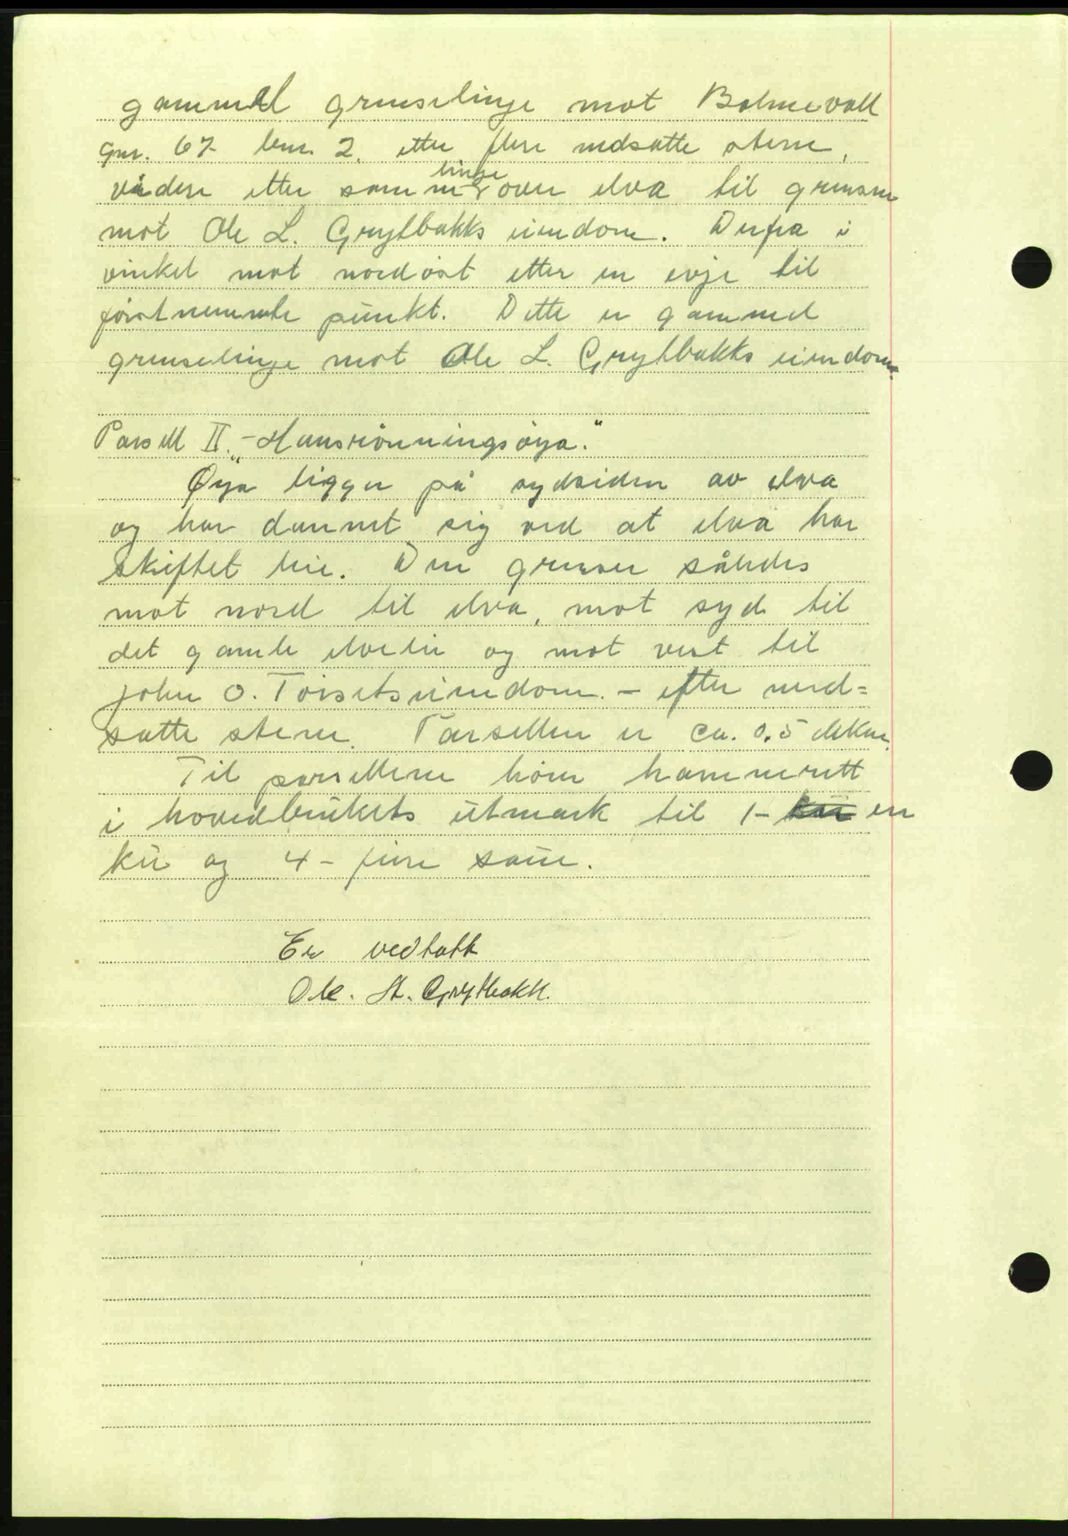 gammel grenselinje mot Bolmevoll
gnr. 67 bnr. 2. etter flere nedsatte stene,
videre etter samme linje over elva til grensen
mot Ole L. Grytbakks eiendom. Derfra i
vinkel mot nordøst etter en evje til
førstnevnte punkt. Dette er gammel
grenselinje mot Ole L. Grytbakks eiendom.
Parsell II. - "Hansrønningsøya."
Øya ligger på sydsiden av elva
og har dannet sig ved at elva har
skiftet leie. Den grenser således
mot nord til elva, mot syd til
det gamle elveleie og mot vest til
John O. Toisets eiendom. - efter ned=
satte stener. Parsellen er ca. 0,5 dekar.
Til parsellene hører hamnerett
i hovedbrukets utmark til 1- ku en
ku og 4 - fire saue.
Er vedtatt
Ole. H. Grytbakk.